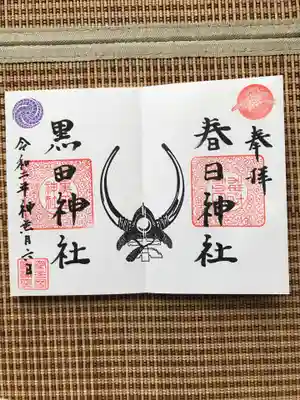 奉拝
春日神社
黒田神社
令和二年神無月六日